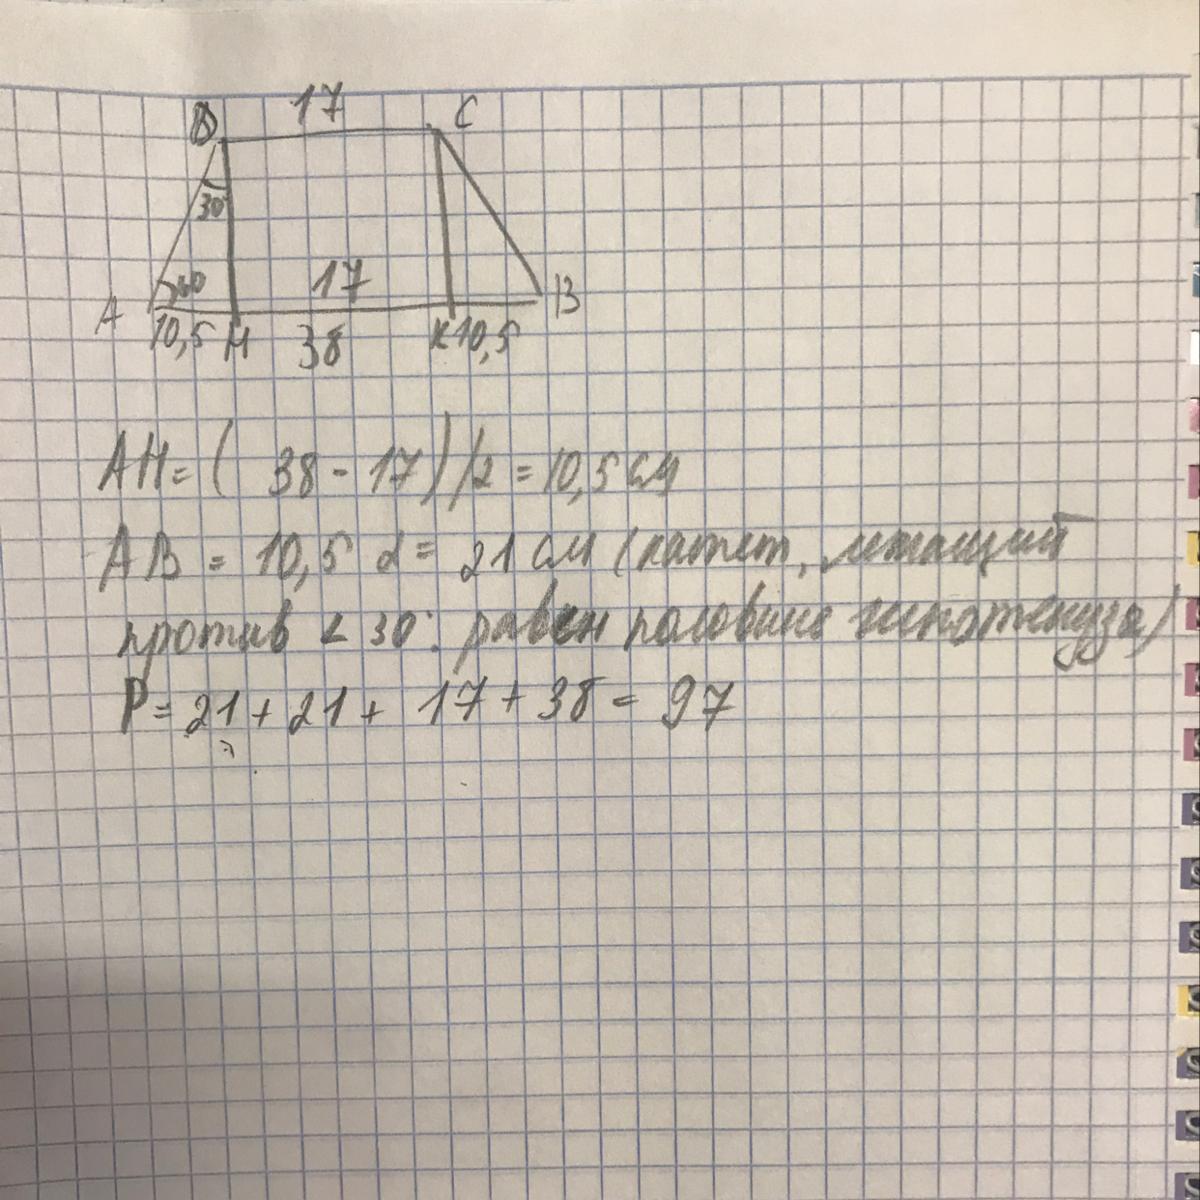 17
D C
30
60 17
A B
10,5 H 38 K 10,5
AH = ( 38 - 17 ) /2 = 10,5 см
AB = 10,5 2 = 21 см (катет, лежащий
против < 30° равен половине гипотенуза)
P = 21 + 21 + 17 + 38 = 97